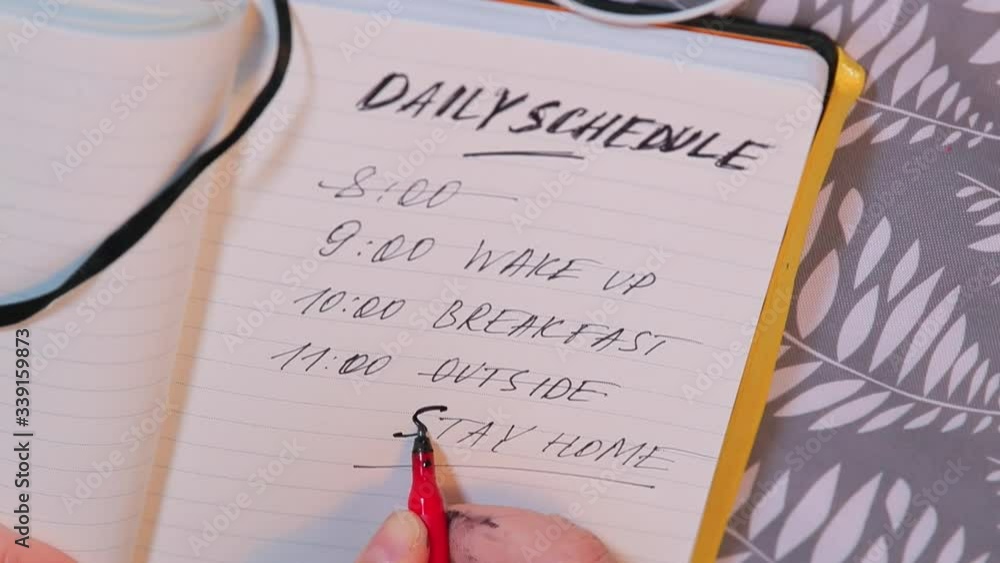 DAILY SCHEDULE
8:00
9:00 WAKE UP
10:00 BREAKFAST
11:00 OUTSIDE
STAY HOME
Adobe Stock | #339159873